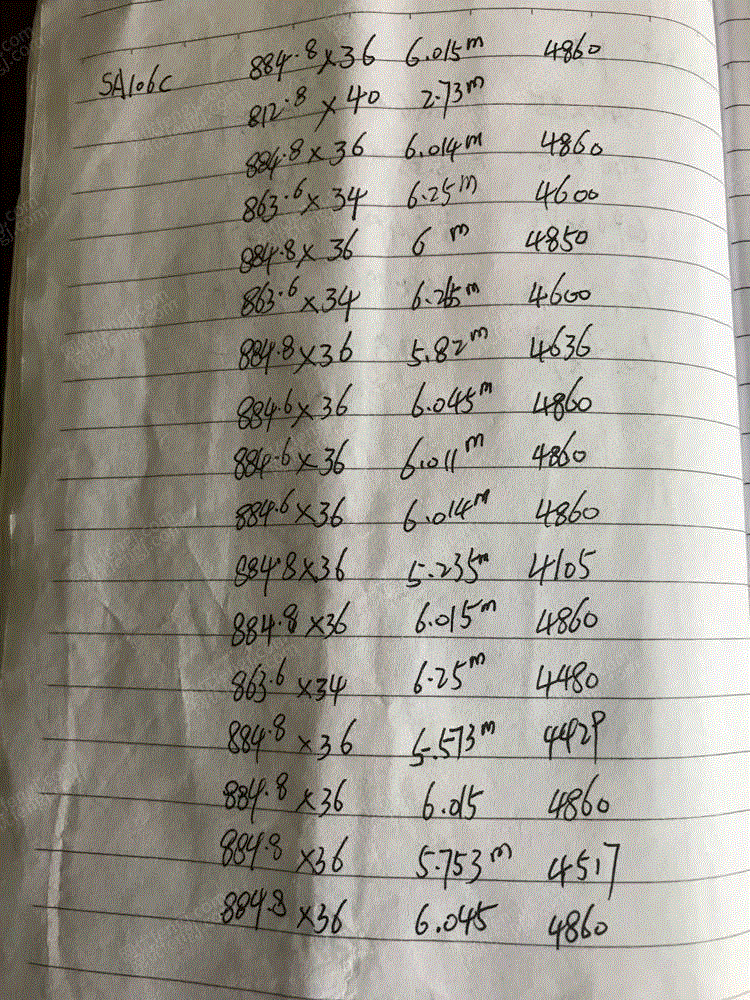 SA106C 884.8×36 6.015m 4860
812.8×40 2.73m
884.8×36 6.014m 4860
863.6×34 6.25m 4600
884.8×36 6m 4850
863.6×34 6.25m 4600
884.8×36 5.82m 4636
884.6×36 6.045m 4860
884.6×36 6.011m 4860
884.6×36 6.014m 4860
884.8×36 5.235m 4105
884.8×36 6.015m 4860
863.6×34 6.25m 4480
884.8×36 5.573m 4429
884.8×36 6.015 4860
884.8×36 5.753m 4517
884.8×36 6.045 4860